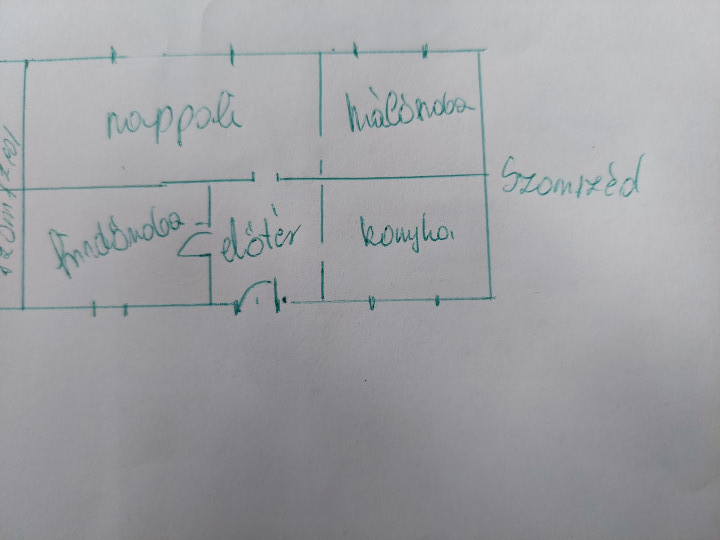 nappali
hálószoba
Szomszéd
fürdőszoba
előtér
konyha